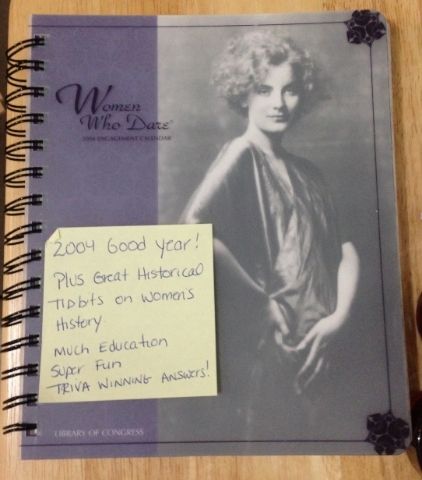 Women
Who Dare
2004 ENGAGEMENT CALENDAR
2004 Good Year!
Plus Great Historical
TIDbits on Women's
History
Much Education
Super Fun
TRIVA WINNING ANSWERS!
LIBRARY OF CONGRESS